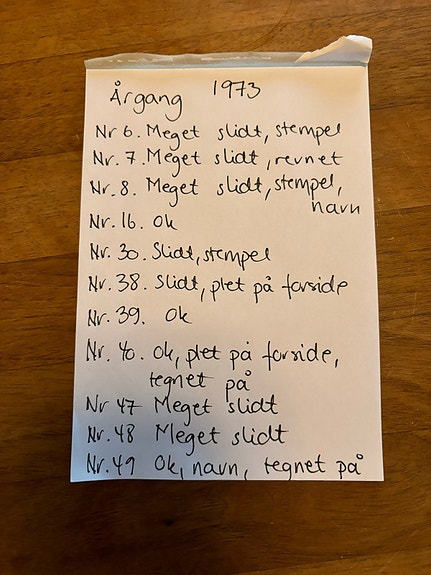 Årgang 1973
Nr 6. Meget slidt, stempel
Nr. 7. Meget slidt, revnet
Nr. 8. Meget slidt, stempel,
navn
Nr. 16. Ok
Nr. 30. Slidt, stempel
Nr. 38. Slidt, plet på forside
Nr. 39. Ok
Nr. 40. Ok, plet på forside,
tegnet på
Nr 47 Meget slidt
Nr. 48 Meget slidt
Nr. 49 Ok, navn, tegnet på